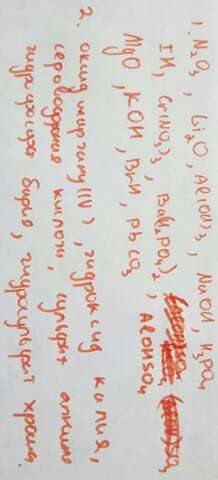 1. N₂O₃, Li₂O, Al(OH)₃, NaOH, H₃PO₄
IH, Cr(NO₃)₃, Ba(H₂PO₄)₂,
MgO, KOH, BrH, PbCO₃, AlOHSO₄
2. оксид (IV), гидроксид калия,
сероводородная кислота, сульфит
гидроксид бария, гидросульфит хрома